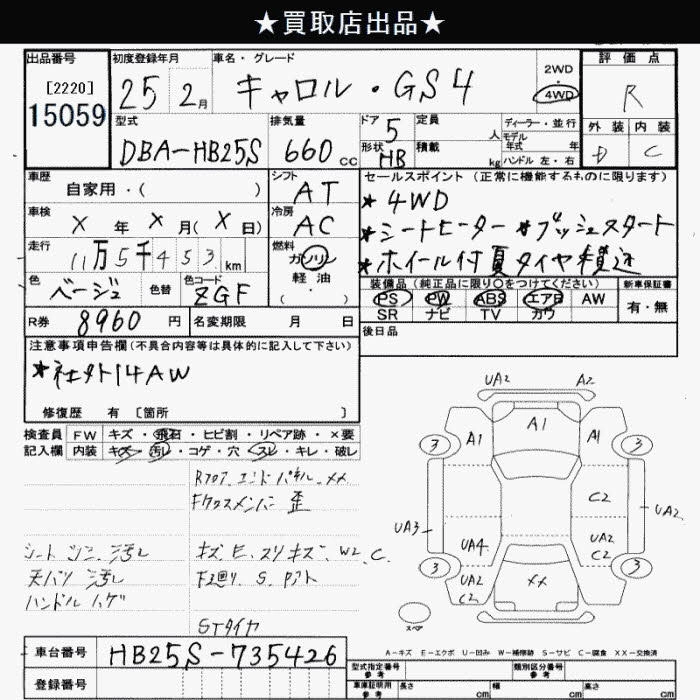 ★買取店出品★
出品番号
[2220]
15059
初度登録年月
25 2月
車名・グレード
キャロル・GS4
2WD
4WD
評価点
R
外装 内装
D C
型式
DBA-HB25S
排気量
660 cc
ドア 5
形状 HB
定員 人
積載 kg
ディーラー・並行
モデル
年式 年
ハンドル 左・右
車歴
自家用・( )
シフト
AT
セールスポイント (正常に機能するものに限ります)
★4WD
★シートヒーター ★プッシュスタート
★ホイール付夏タイヤ積込
車検
X 年 X 月(X 日)
冷房
AC
走行
11万5千453 km
燃料
ガソリン
軽油
( )
色
ベージュ
色替
色コード
ZGF
装備品(純正品に限り○をつけてください)
PS PW ABS エアB AW
SR ナビ TV カワ
新車保証書
有・無
R券 8960 円
名変期限 月 日
後日品
注意事項申告欄(不具合内容等は具体的に記入して下さい)
★社外14AW
修復歴 有 [箇所 ]
検査員 FW キズ・飛石・ヒビ割・リペア跡・×要
記入欄 内装 キズ・汚レ・コゲ・穴・スレ・キレ・破レ
Rフロア、エンドパネル、XX
Fクロスメンバー歪
シート シミ 汚レ
天バリ 汚レ
ハンドル ハゲ
キズ、E、スリキズ、W2、C、
下廻り、S、
STタイヤ
UA2 A2
A1
A1 A1
3 3
C2
UA2
UA3
UA4
UA2
C2
3 3
UA2
C2
XX
スペア
A-キズ E-エクボ U-凹み W-補修跡 S-サビ C-腐食 XX-交換済
車台番号 HB25S-735426
登録番号
型式指定番号
参考
類別区分番号
参考
車庫証明用
参考
長さ cm 幅 cm 高さ cm